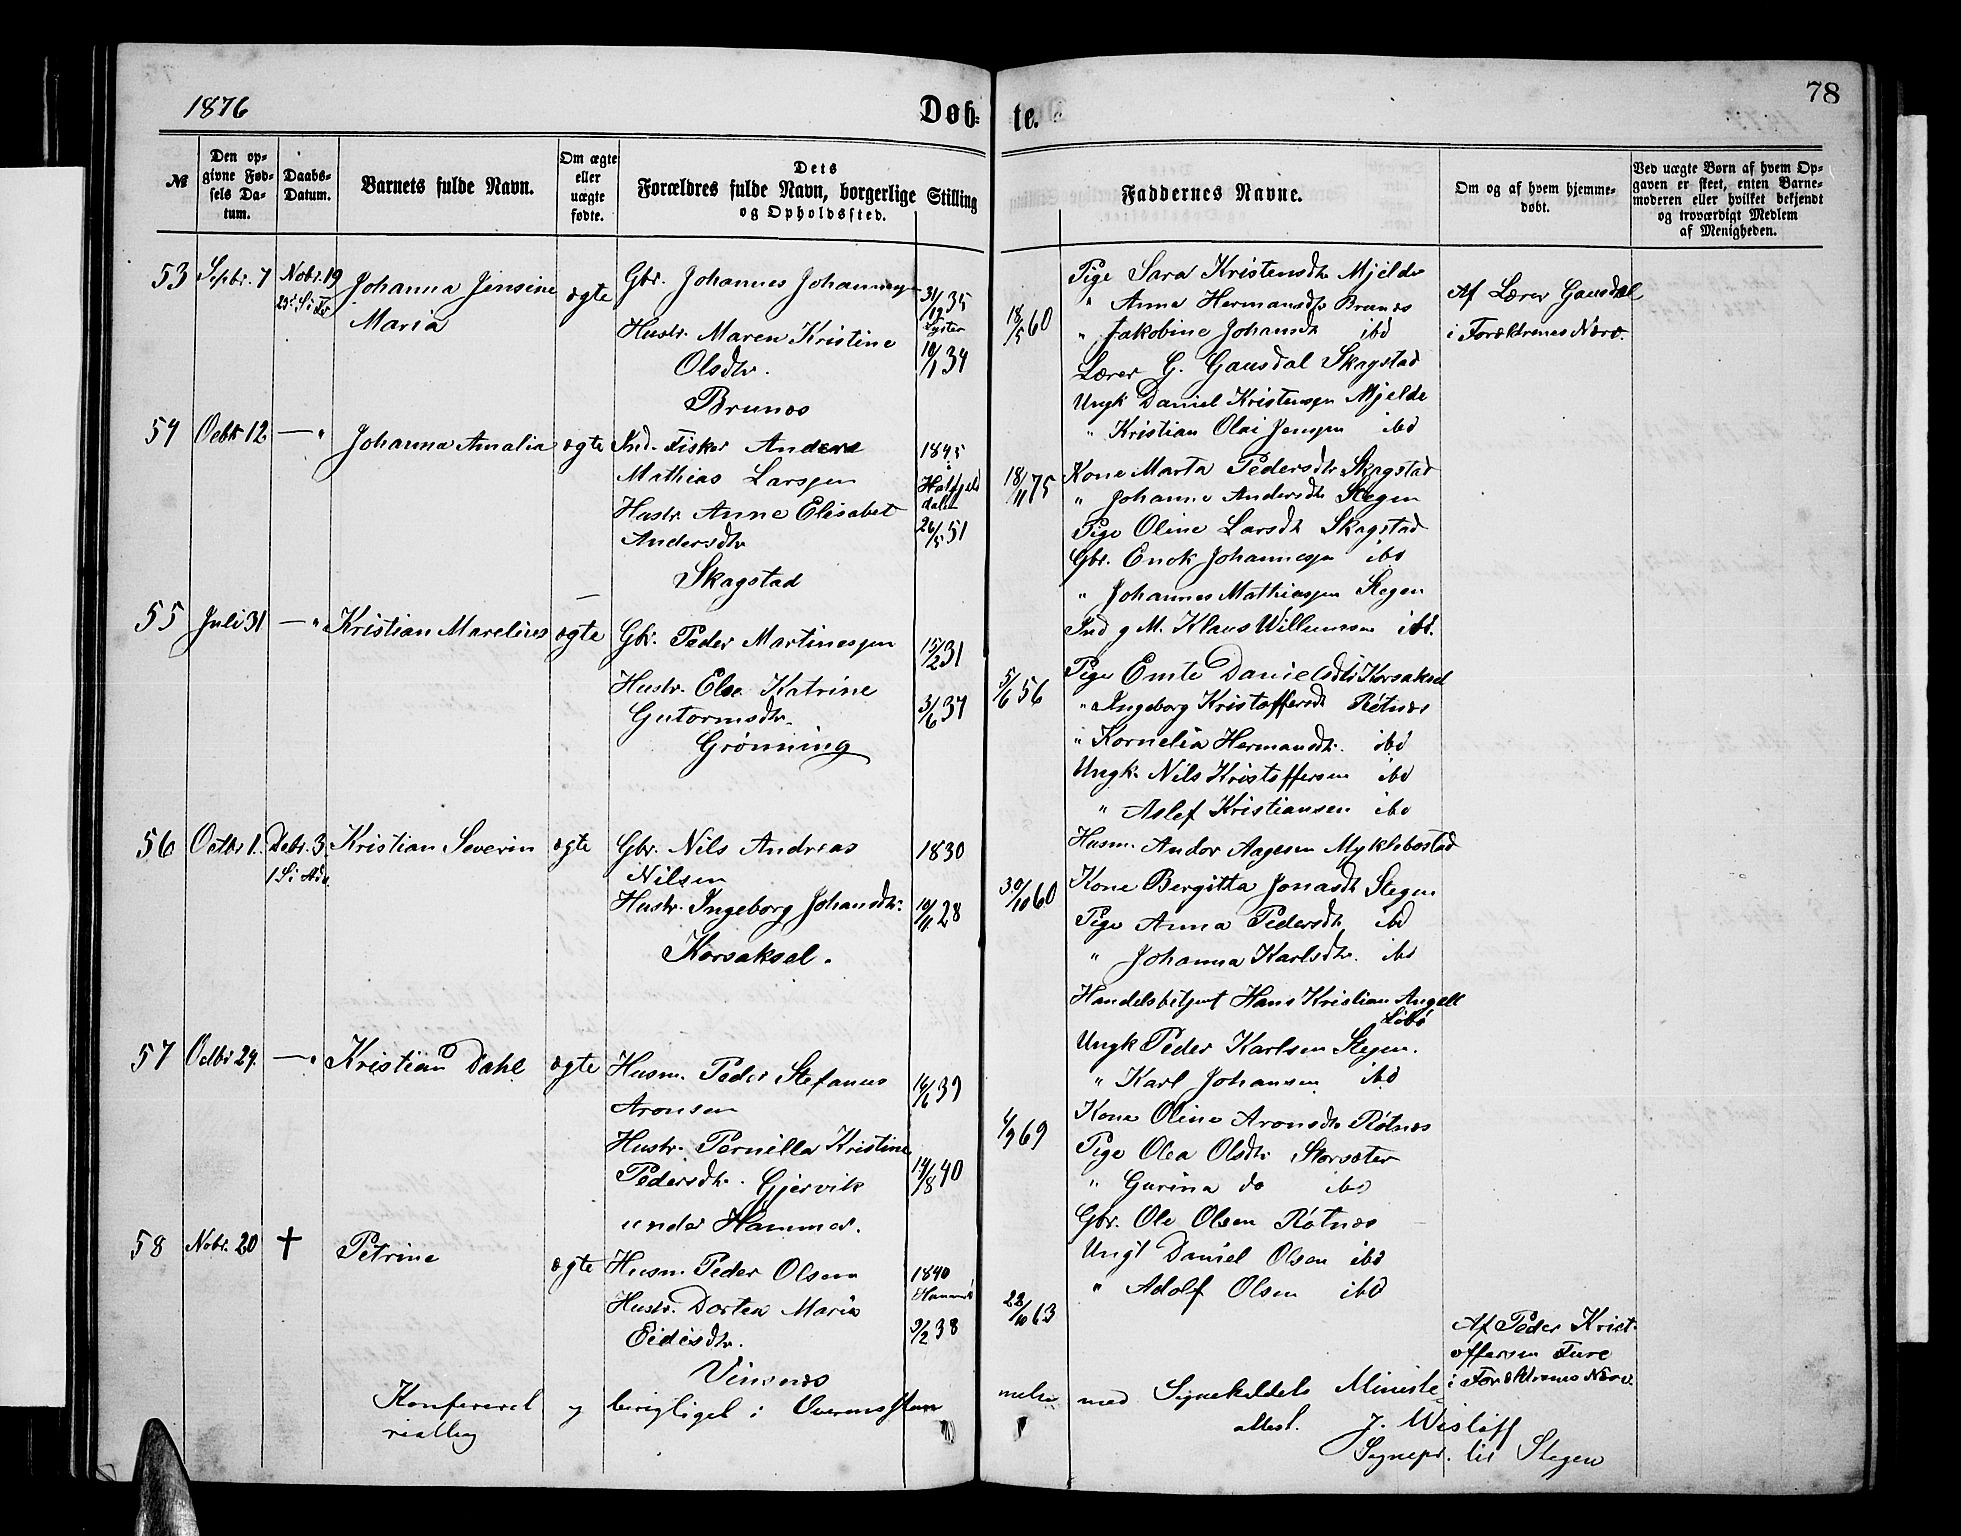 1876
Døb-
te.
78
№
Den op-
givne Fød-
sels Da-
tum.
Daabs-
Datum.
Barnets fulde Navn.
Om ægte
eller
uægte
fødte.
Dets
Forældres fulde Navn, borgerlige Stilling
og Opholdssted.
Faddernes Navne.
Om og af hvem hjemme-
døbt.
Ved uægte Børn af hvem Op-
gaven er skeet, enten Barne-
moderen eller hvilket bekjendt
og troværdigt Medlem
af Menigheden.
53 Septbr. 7 Nobr. 19
Johanna Jensine
Maria
ægte
Gbr. Johannes Johannesen
31/12 35
Hustr. Maren Kristine
10/1 34
Olsdtr.
Brunæs
18/5 60
Pige Sara Kristensdtr Mjelde
" Anna Hermansdtr Brunæs
" Jakobine Johansdtr ibd
Lærer G. Gausdal Skagstad
Ungk Daniel Kristensen Mjelde
" Kristian Olai Jensen ibd
Af Lærer Gausdal
i Forældrenes Nærv.
54 Octbr 12 — "
Johanna Amalia
ægte
Ind. Fisker Anders
Mathias Larssen
1845
Hatfjeld
dalen
Hustr. Anne Elisabet
Andersdtr
26/5 51
Skagstad
18/11 75
Kone Marta Pedersdtr Skagstad
" Johanne Andersdtr Stegen
Pige Oline Larsdtr Skagstad
Gbr. Enok Johannessen ibd
" Johannes Mathiassen Stegen
Ind g M. Klaus Willumsen ibd.
55 Juli 31 — "
Kristian Marelius
ægte
Gbr. Peder Martinessen
15/2 31
Hustr. Else Katrine
Gutormsdtr.
3/6 37
Grønning
5/6 56
Pige Emte Danielsdtr Korsaksel
" Ingeborg Kristoffersdtr Røtnæs
" Kornelia Hermansdtr. ibd
Ungk. Nils Kristoffersen ibd
" Aslef Kristiansen ibd
Husm. Andor Aagesen Myklebostad
56 Octbr 1. Debr. 3.
1 S. i Adv.
Kristian Severin
ægte
Gbr. Nils Andreas
Nilsen
1830
Hustr. Ingeborg Johansdtr.
10/11 28
Korsaksel.
30/10 60
Kone Bergitta Jonasdtr Stegen
Pige Anna Pedersdtr ibd
" Johanna Karlsdtr. ibd
Handelsbetjent Hans Kristian Angell
Løbø
Ungk Peder Karlsen Stegen.
" Karl Johansen ibd
57 Octbr 29. — "
Kristian Dahl
ægte
Husm. Peder Stefanus
Aronsen
14/6 39
Hustr. Pernilla Kristine
Pedersdtr. Gjervik
14/8 40
under Hammer.
4/9 69
Kone Oline Aronsdtr Røtnæs
Pige Olea Olsdtr Storsæter
" Gurina do ibd
Gbr. Ole Olsen Røtnæs
Ungk Daniel Olsen ibd
" Adolf Olsen ibd
58 Nobr. 20 †
Petrine
ægte
Husm. Peder Olsen
1840
Hustr. Dortea Maria
Eidisdtr.
9/2 38
Vinsnæs
28/10 63
Af Peder Krist-
offersen Fure
i Forældrenes Nærv.
Konfereret og berigtiget i Overensstem melse med Sognekaldets Ministe
rialbog
attest. J. Wisløff
Sognepr. til Stegen